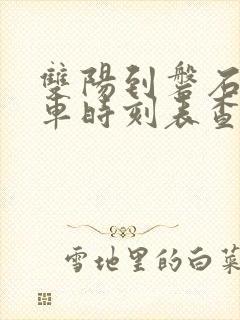 雙陽到磐石
車時刻表查
雪地里的白菜